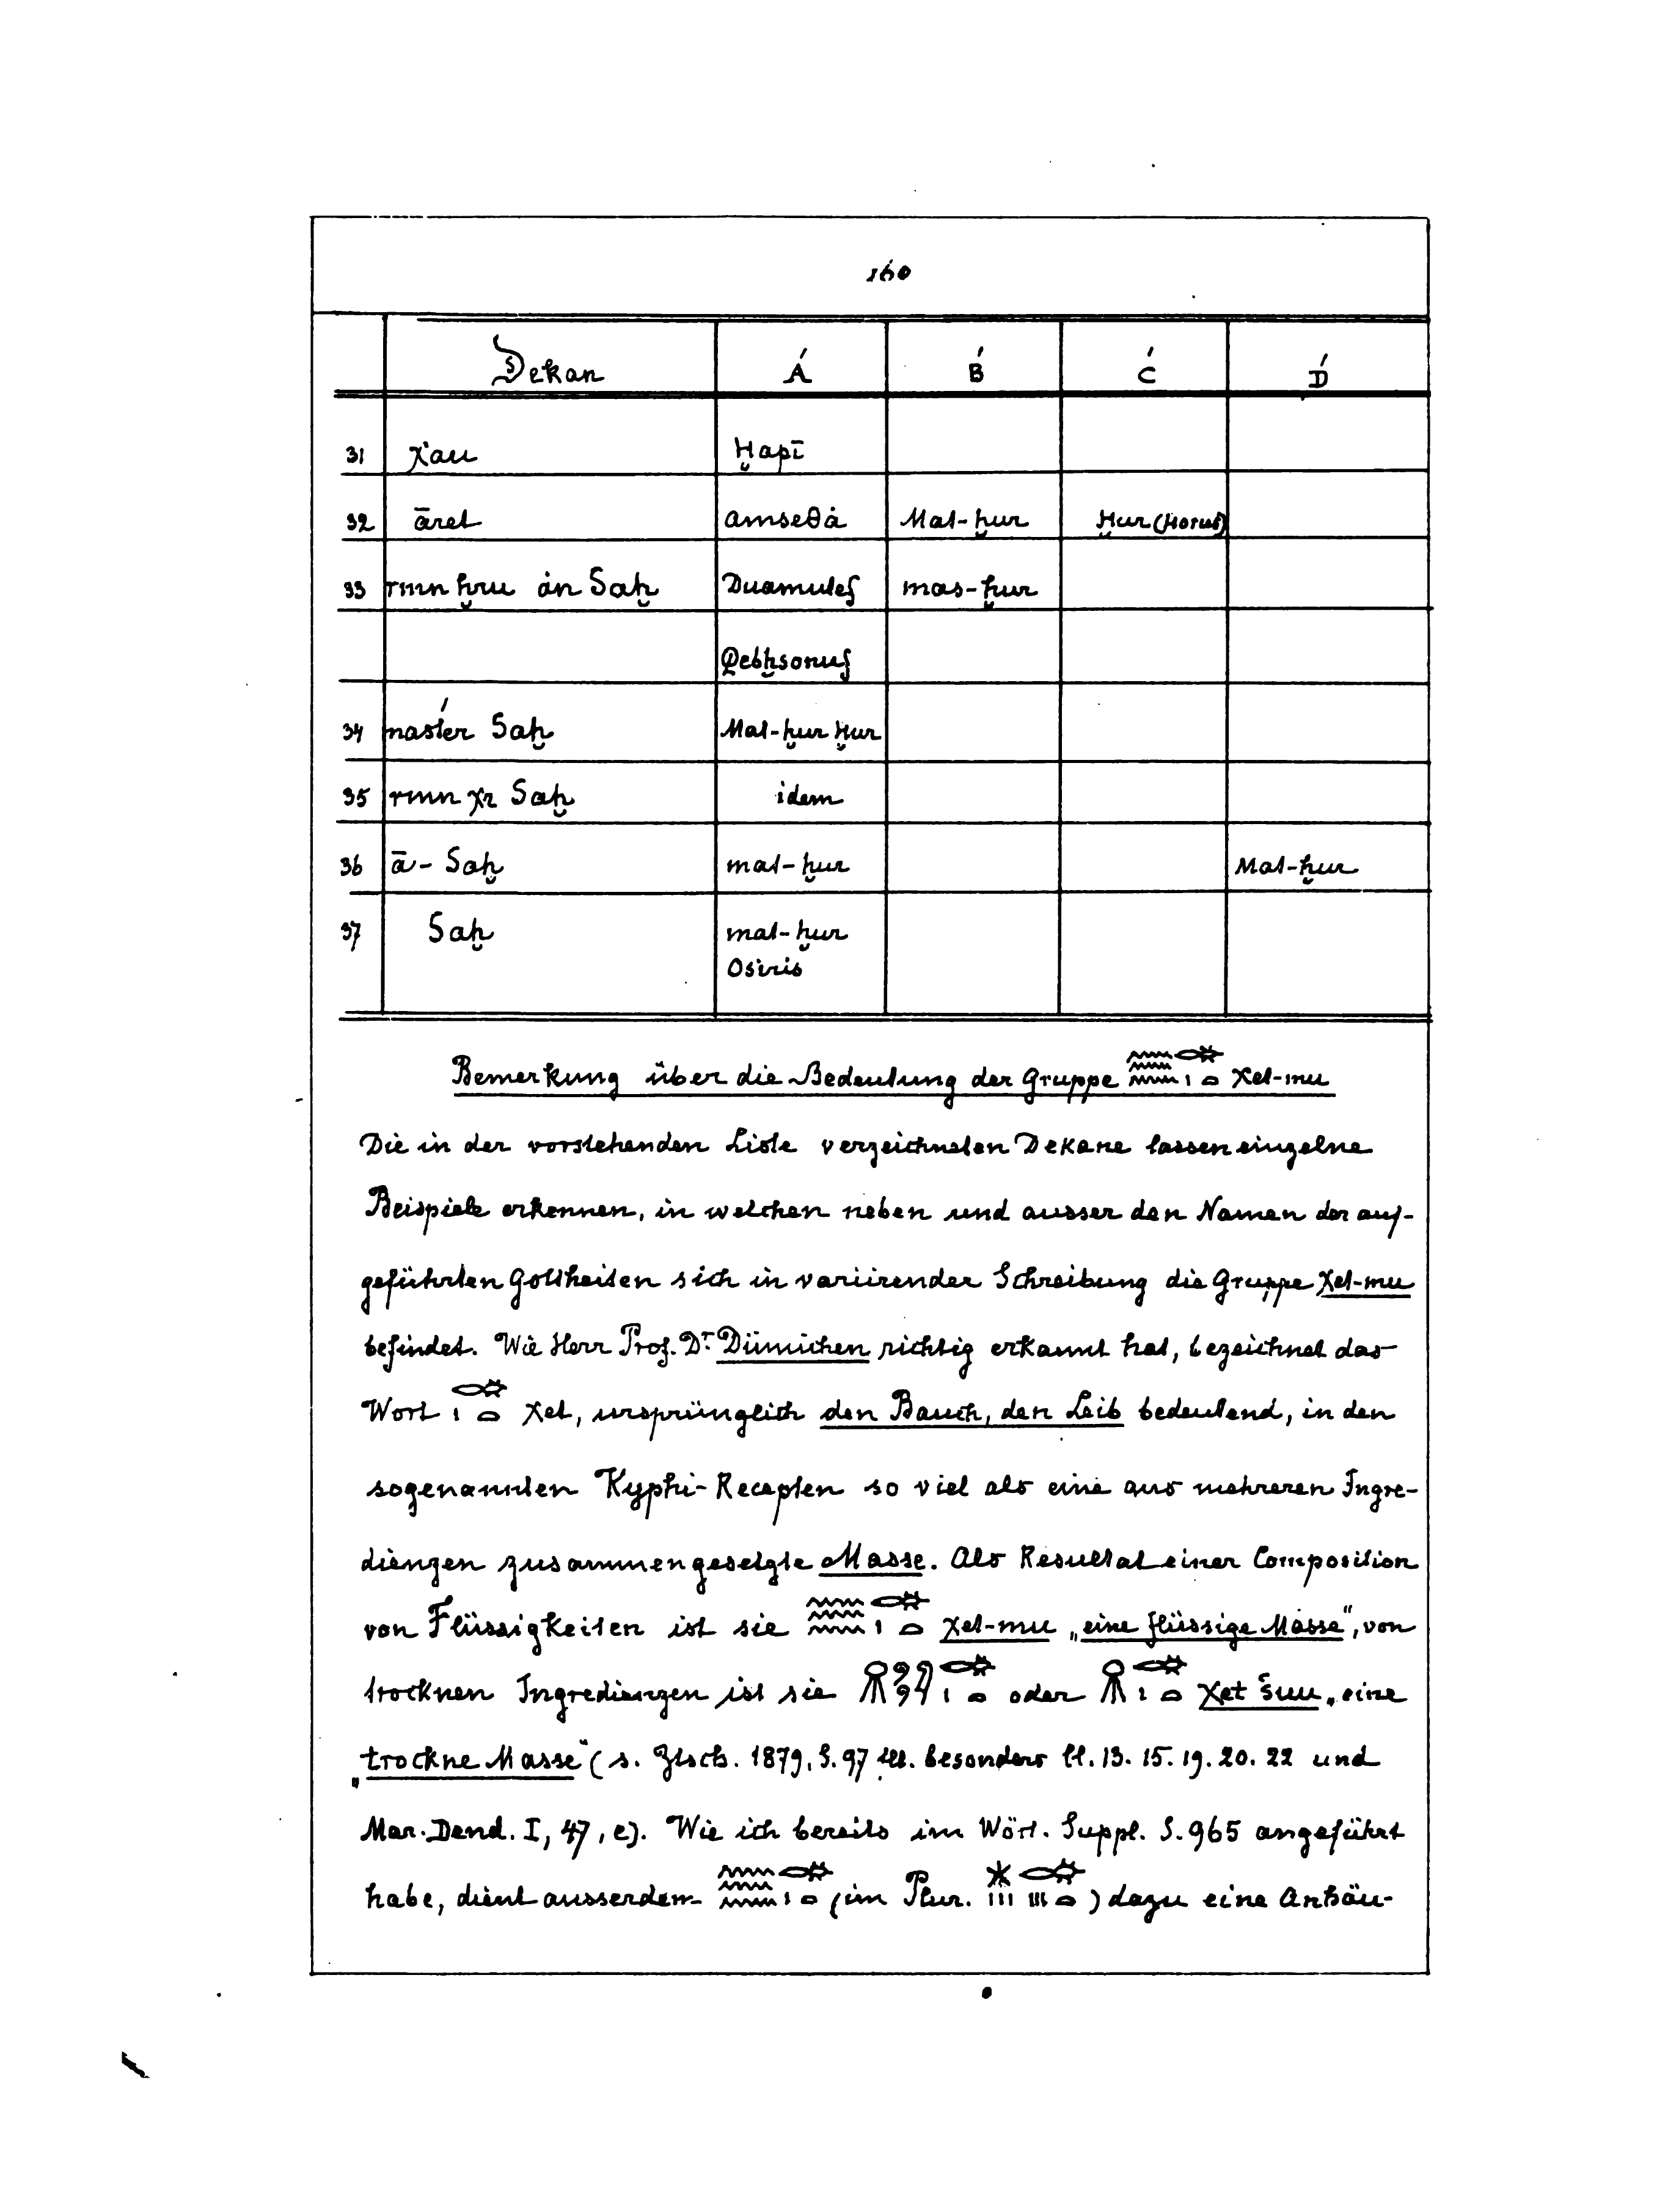 160
Dekan Á B́ Ć D́
31 χau Ḥapī
32 āret amseθȧ Mat-ḥur Ḥur (Horus)
33 rmn ḥru ȧn Saḥ Duamutef mas-ḥur
Qebḥsonuf
34 Saḥ Mat-ḥur Ḥur
35 rmn χr Saḥ idem
36 ā - Saḥ mat-ḥur Mat-ḥur
37 Saḥ mat-ḥur
Osiris
Bemerkung über die Bedeutung der Gruppe χet-mu
Die in der vorstehenden Liste verzeichneten Dekane lassen einzelne
Beispiele erkennen, in welchen neben und ausser den Namen der auf-
geführten Gottheiten sich in variirender Schreibung die Gruppe χet-mu
befindet. Wie Herr Prof. Dr. Dümichen richtig erkannt hat, bezeichnet das
Wort χet, ursprünglich den Bauch, den Leib bedeutend, in den
sogenannten Kyphi-Recepten so viel als eine aus mehreren Ingre-
dienzen zusammengesetzte Masse. Als Resultat einer Composition
von Flüssigkeiten ist sie χet-mu „eine flüssige Masse", von
trocknen Ingredienzen ist sie oder χet šuu „eine
„trockne Masse" (s. Ztsch. 1879, S. 97 besonders ll. 13. 15. 19. 20. 22 und
Mar. Dend. I, 47, e). Wie ich bereits im Wört. Suppl. S. 965 angeführt
habe, dient ausserdem (im Plur. ) dazu eine Anhäu-